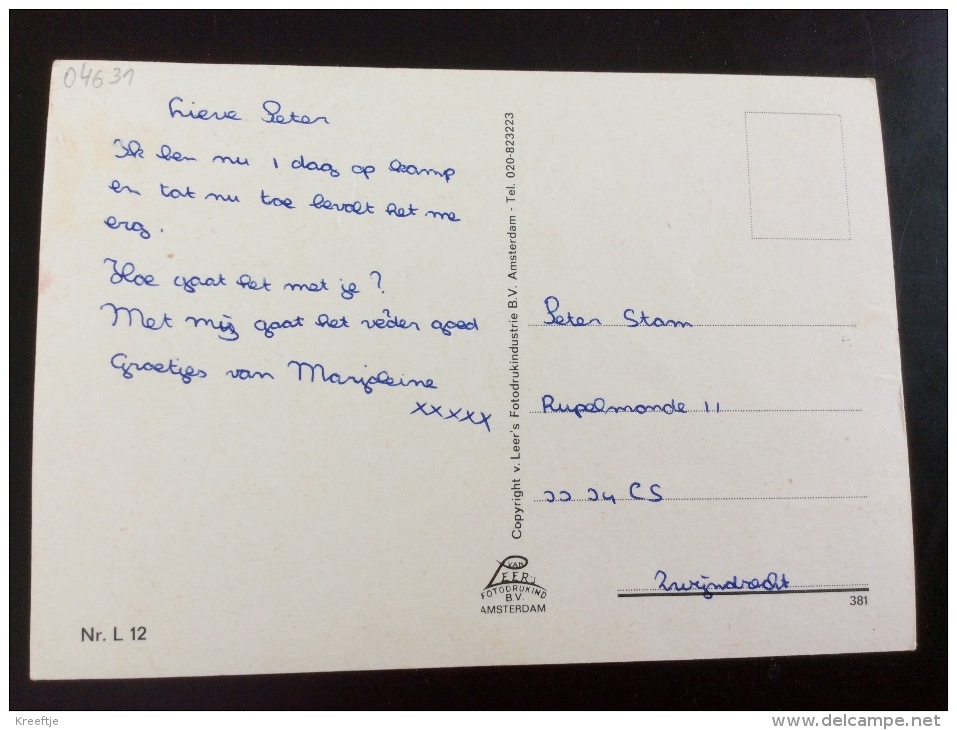 04631
Lieve Peter
Ik ben nu 1 dag op kamp
en tot nu toe bevolt het me
erg.
Hoe gaat het met je?
Met mij gaat het veder goed
Groetjes van Marjoleine
xxxxx
Copyright v. Leer's Fotodrukindustrie B.V. Amsterdam - Tel. 020-823223
Peter Stam
Rupelmonde 11
CS
Zwijndrecht
381
VAN
LEER'S
FOTODRUKIND
B.V.
AMSTERDAM
Nr. L 12
Kreeftje
www.delcampe.net